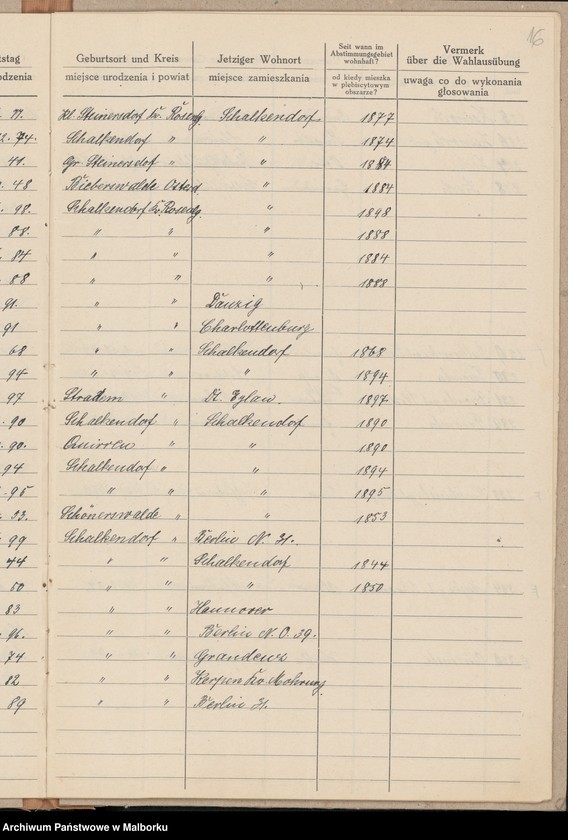 16
tstag Geburtsort und Kreis Jetziger Wohnort Seit wann im Abstimmungsgebiet wohnhaft? Vermerk über die Wahlausübung
odzenia miejsce urodzenia i powiat miejsce zamieszkania od kiedy mieszka w plebiscytowym obszarze? uwaga co do wykonania głosowania
77. Kl. Steinersdorf Kr. Rosenbg. Schalkendorf 1877
2. 74. Schalkendorf " " 1874
Gr. Steinersdorf " "
48 Bieberswalde Osterd. " 1884
98. Schalkendorf Kr. Rosenbg. " 1898
88. " " " 1888
84 " " " 1884
88 " " " 1888
91. " " Danzig
98 " " Charlottenburg
68 " " Schalkendorf 1868
94 " " " 1894
97 Stradem " Dt. Eylau 1897
90 Schalkendorf " Schalkendorf 1890
90. " " 1890
94 Schalkendorf " " 1894
95 " " " 1895
53. Schönerswalde " " 1853
99 Schalkendorf " Berlin N. 31.
44 " " Schalkendorf 1844
50 " " " 1850
83 " " Hannover
96. " " Berlin N. O. 39.
74 " " Graudenz
82 " " Kerpen Kr. Mohrung.
89 " " Berlin
Archiwum Państwowe w Malborku